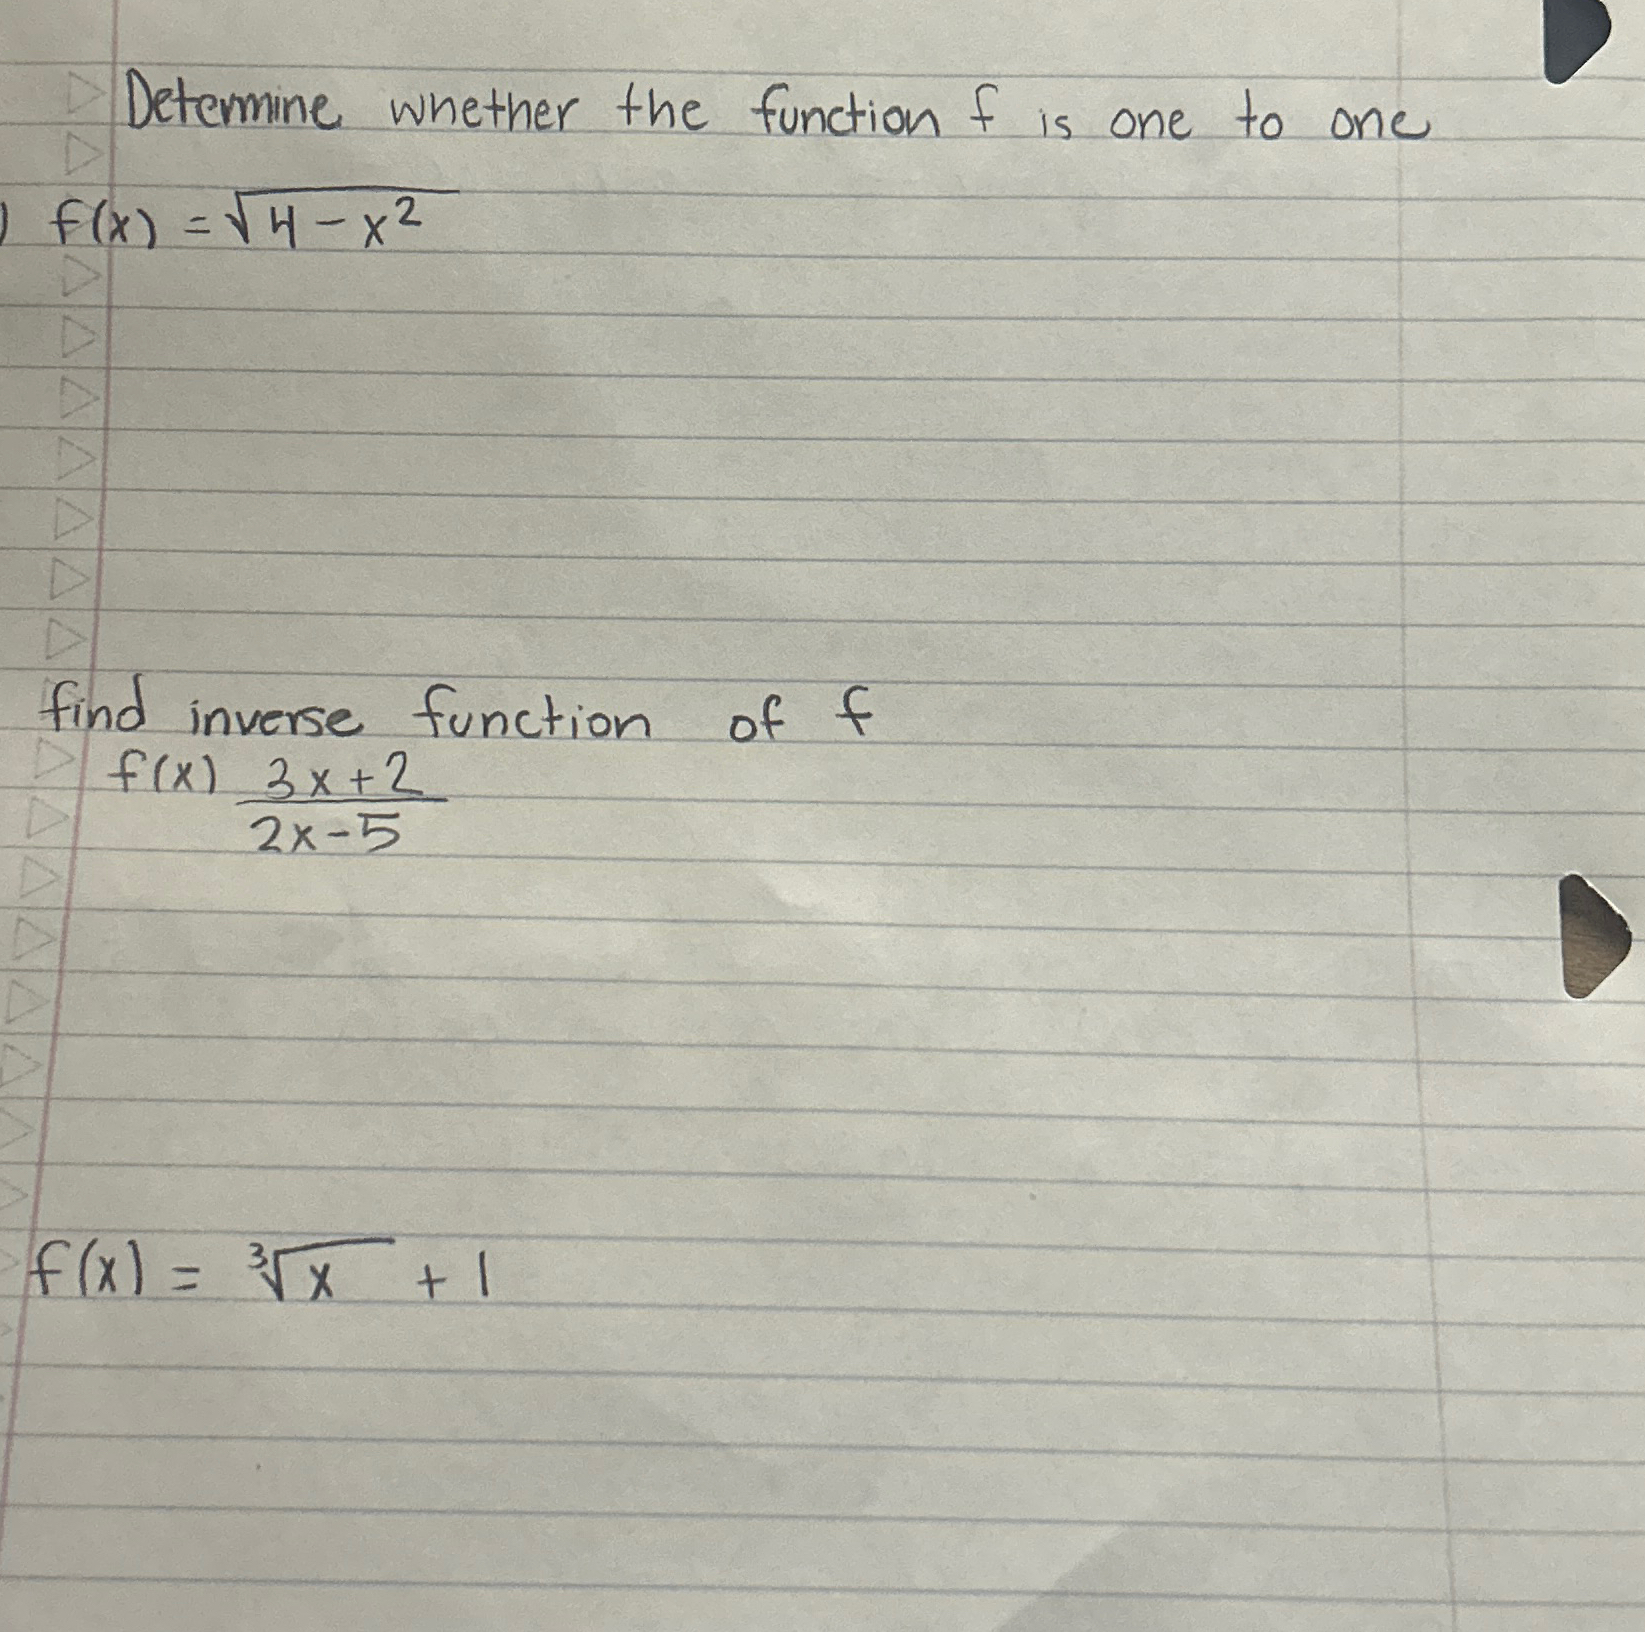 Determine whether the function f is one to one
) f(x) = √4 - x²
find inverse function of f
f(x) 3x+2
2x-5
f(x) = ³√x + 1